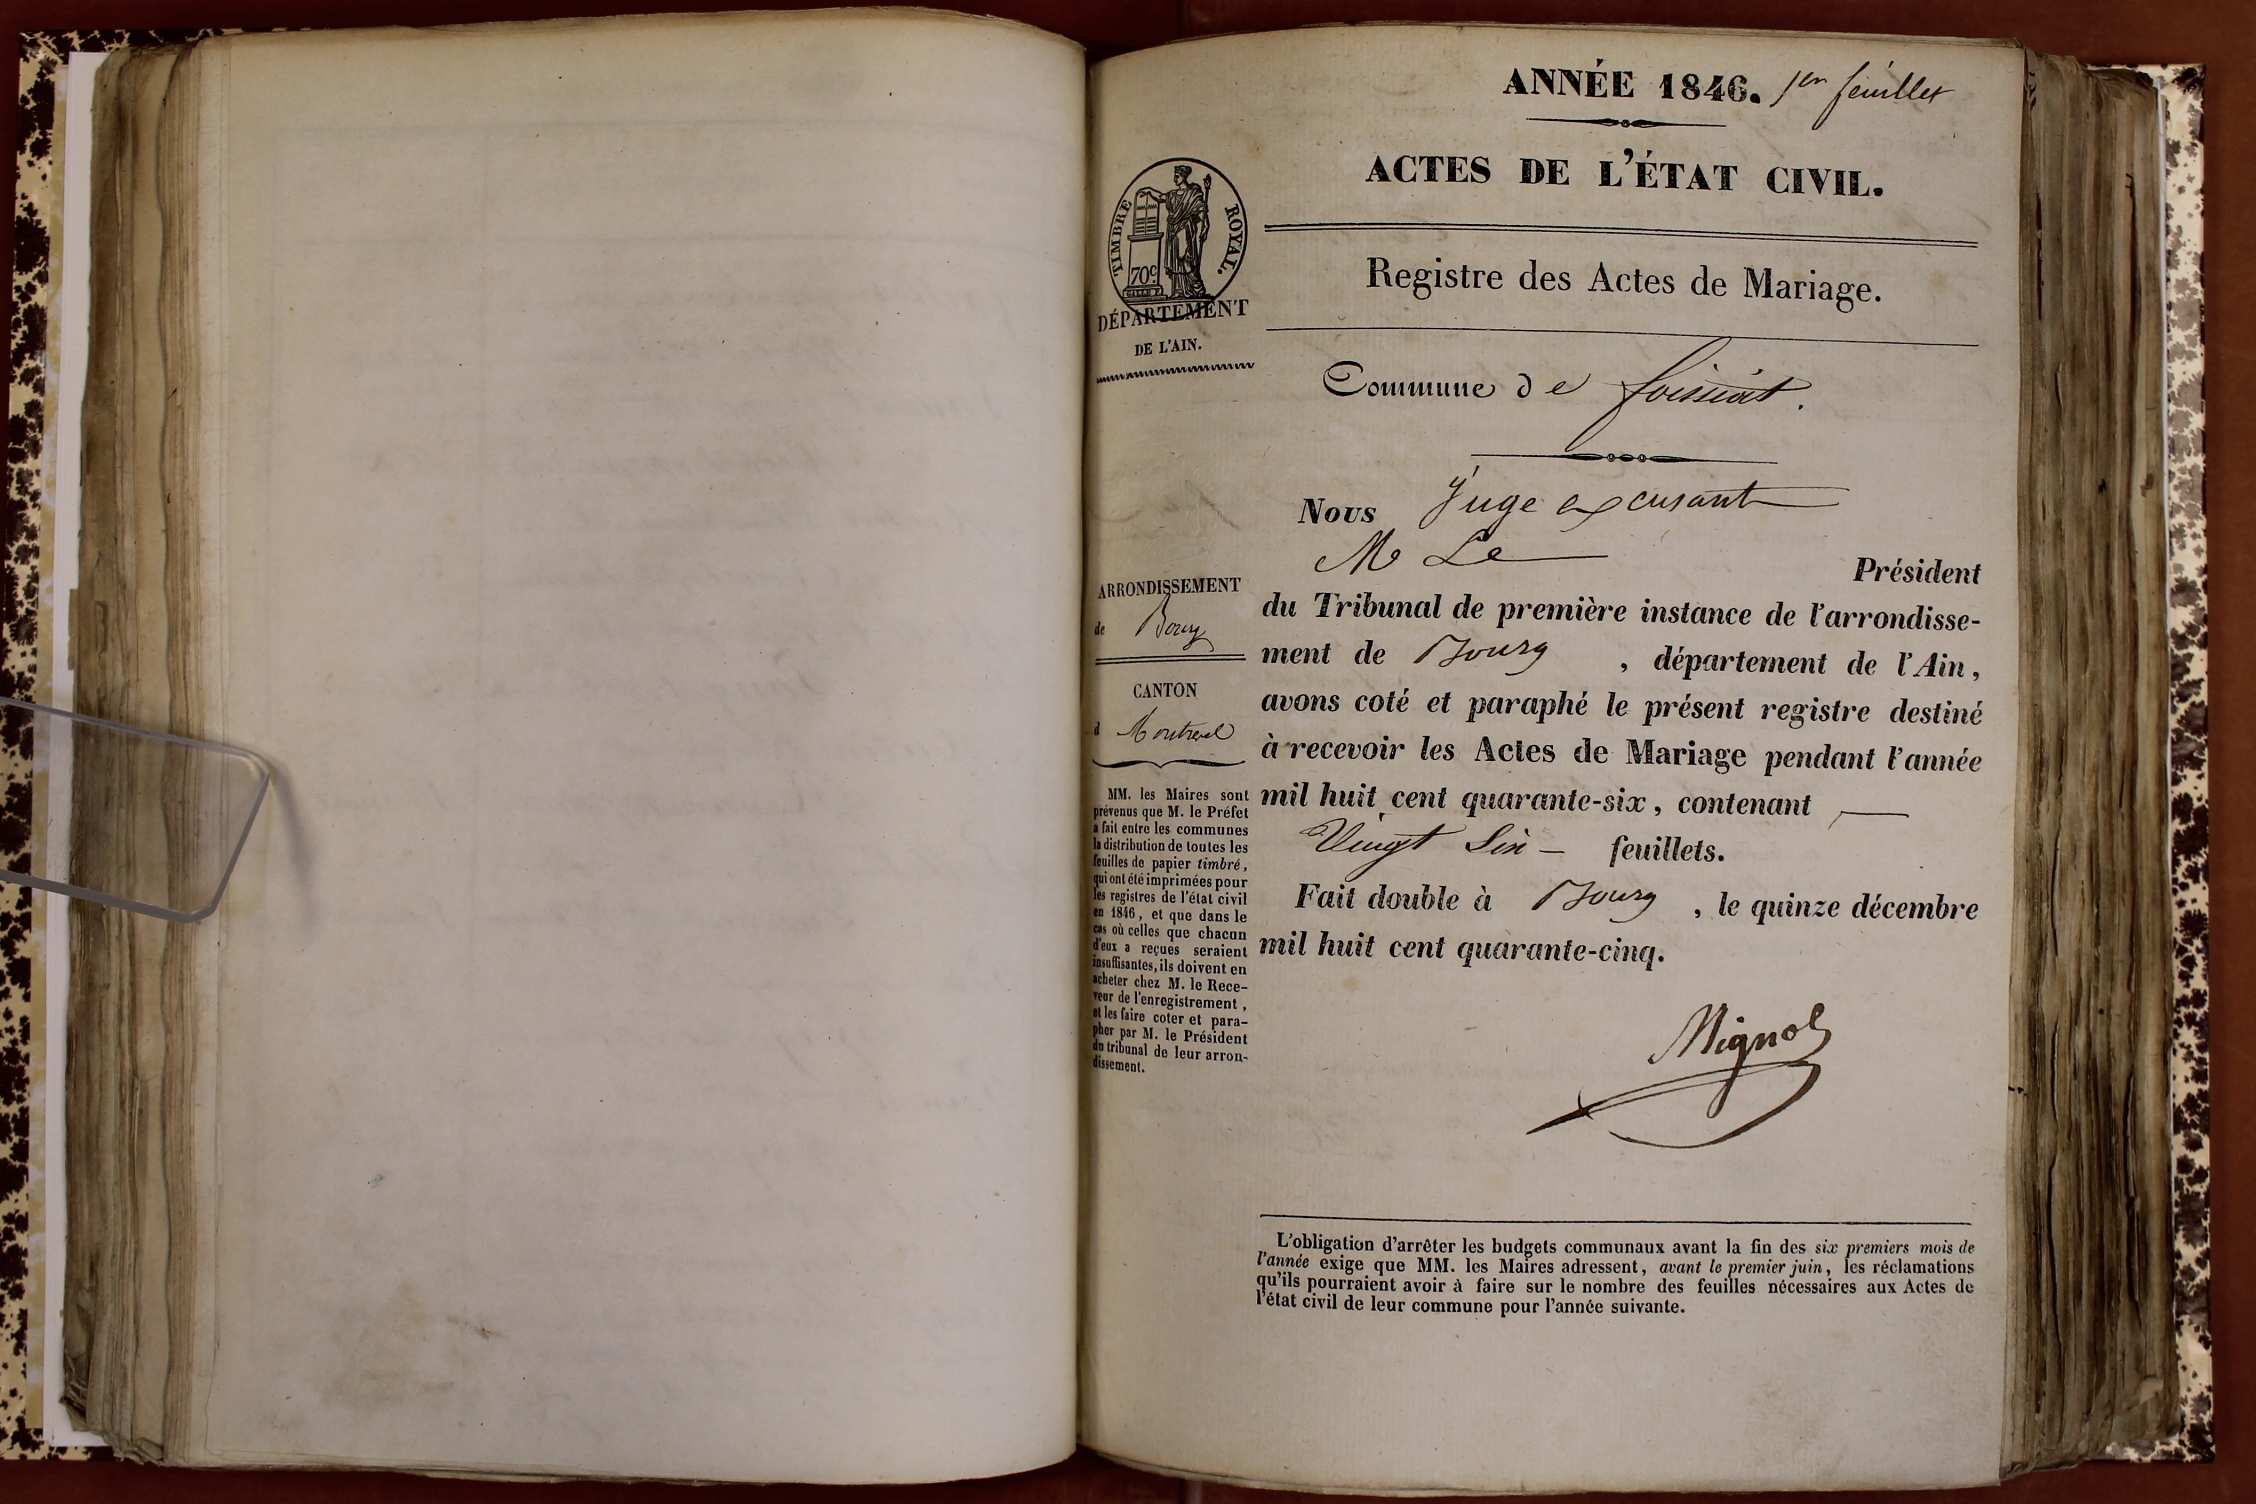 ANNÉE 1846. 1er feuillet
ACTES DE L'ÉTAT CIVIL.
TIMBRE ROYAL.
70c
DÉPARTEMENT
DE L'AIN.
Registre des Actes de Mariage.
Commune de foissiat.
Nous Juge excusant
M Le Président
ARRONDISSEMENT
de Bourg
CANTON
d Montrevel
du Tribunal de première instance de l'arrondisse-
ment de Bourg, département de l'Ain,
avons coté et paraphé le présent registre destiné
à recevoir les Actes de Mariage pendant l'année
mil huit cent quarante-six, contenant
Vingt Six feuillets.
Fait double à Bourg, le quinze décembre
mil huit cent quarante-cinq.
MM. les Maires sont
prévenus que M. le Préfet
a fait entre les communes
la distribution de toutes les
feuilles de papier timbré,
qui ont été imprimées pour
les registres de l'état civil
en 1846, et que dans le
cas où celles que chacun
d'eux a reçues seraient
insuffisantes, ils doivent en
acheter chez M. le Rece-
veur de l'enregistrement,
et les faire coter et para-
pher par M. le Président
du tribunal de leur arron-
dissement.
Mignot
L'obligation d'arrêter les budgets communaux avant la fin des six premiers mois de
l'année exige que MM. les Maires adressent, avant le premier juin, les réclamations
qu'ils pourraient avoir à faire sur le nombre des feuilles nécessaires aux Actes de
l'état civil de leur commune pour l'année suivante.